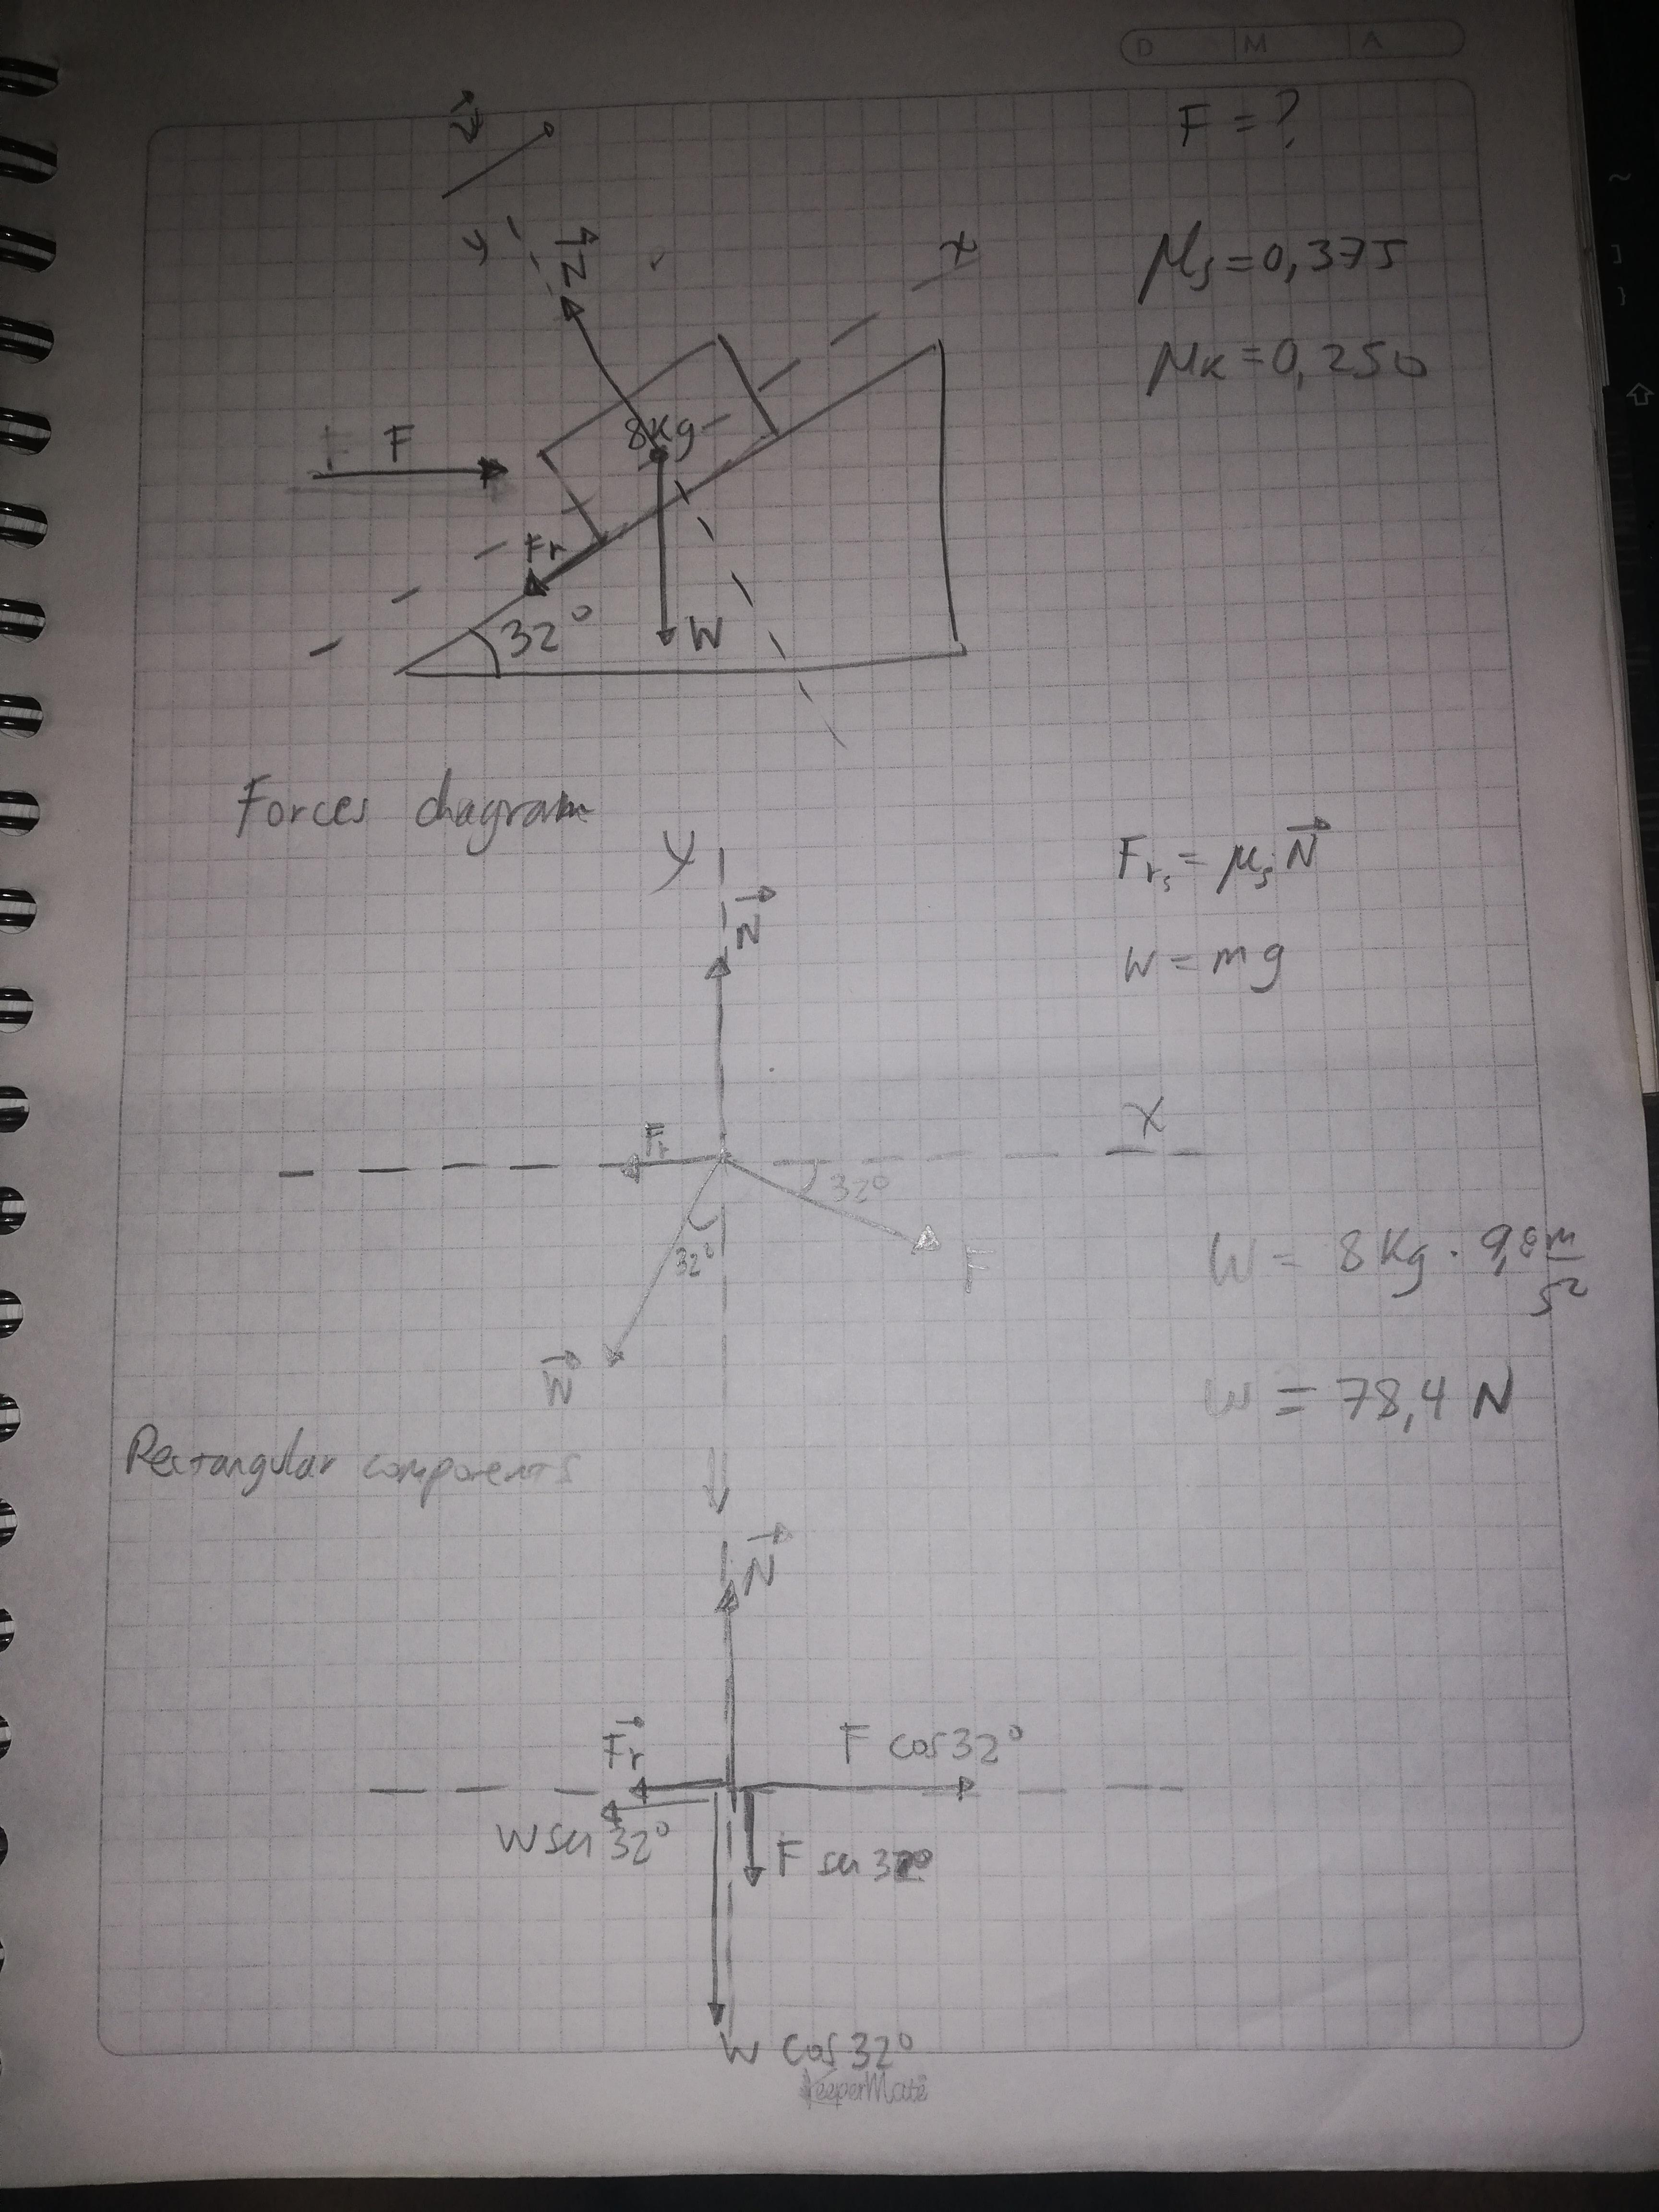 D M A
F = ?
μs = 0,375
μk = 0,250
y
N
x
8Kg
F
Fr
32°
W
Forces diagram
y
N
Frs = μs N
W = mg
x
Fr
32°
32°
F
W
W = 8 Kg · 9,8 m/s²
W = 78,4 N
Rectangular components
N
Fr
F cos 32°
W sen 32°
F sen 32°
W cos 32°
KeeperMate